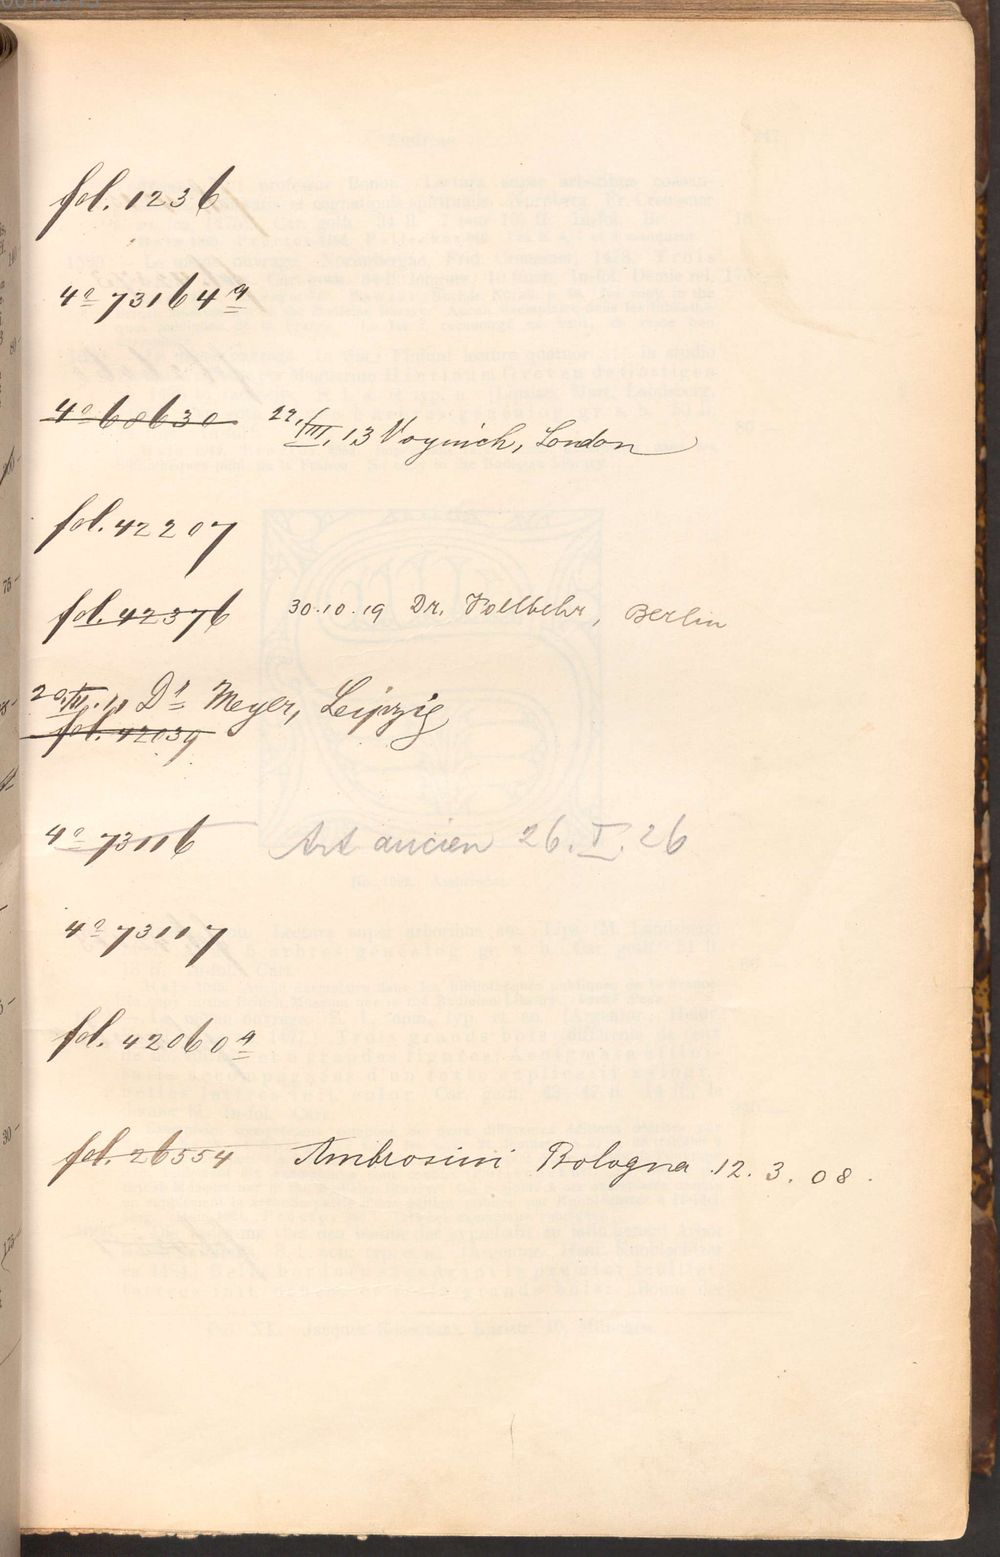 fol. 1236
4º 73164ª
4º 68630 22./III. 13 Voynich, London
fol. 42207
fol. 42376 30.10.19 Dr. Vollbehr, Berlin
20.III.11 Dr Meyer, Leipzig
fol. 42039
4º 73116 Art ancien 26. I. 26
4º 73117
fol. 42060ª
fol. 26554 Ambrosini Bologna 12. 3. 08.